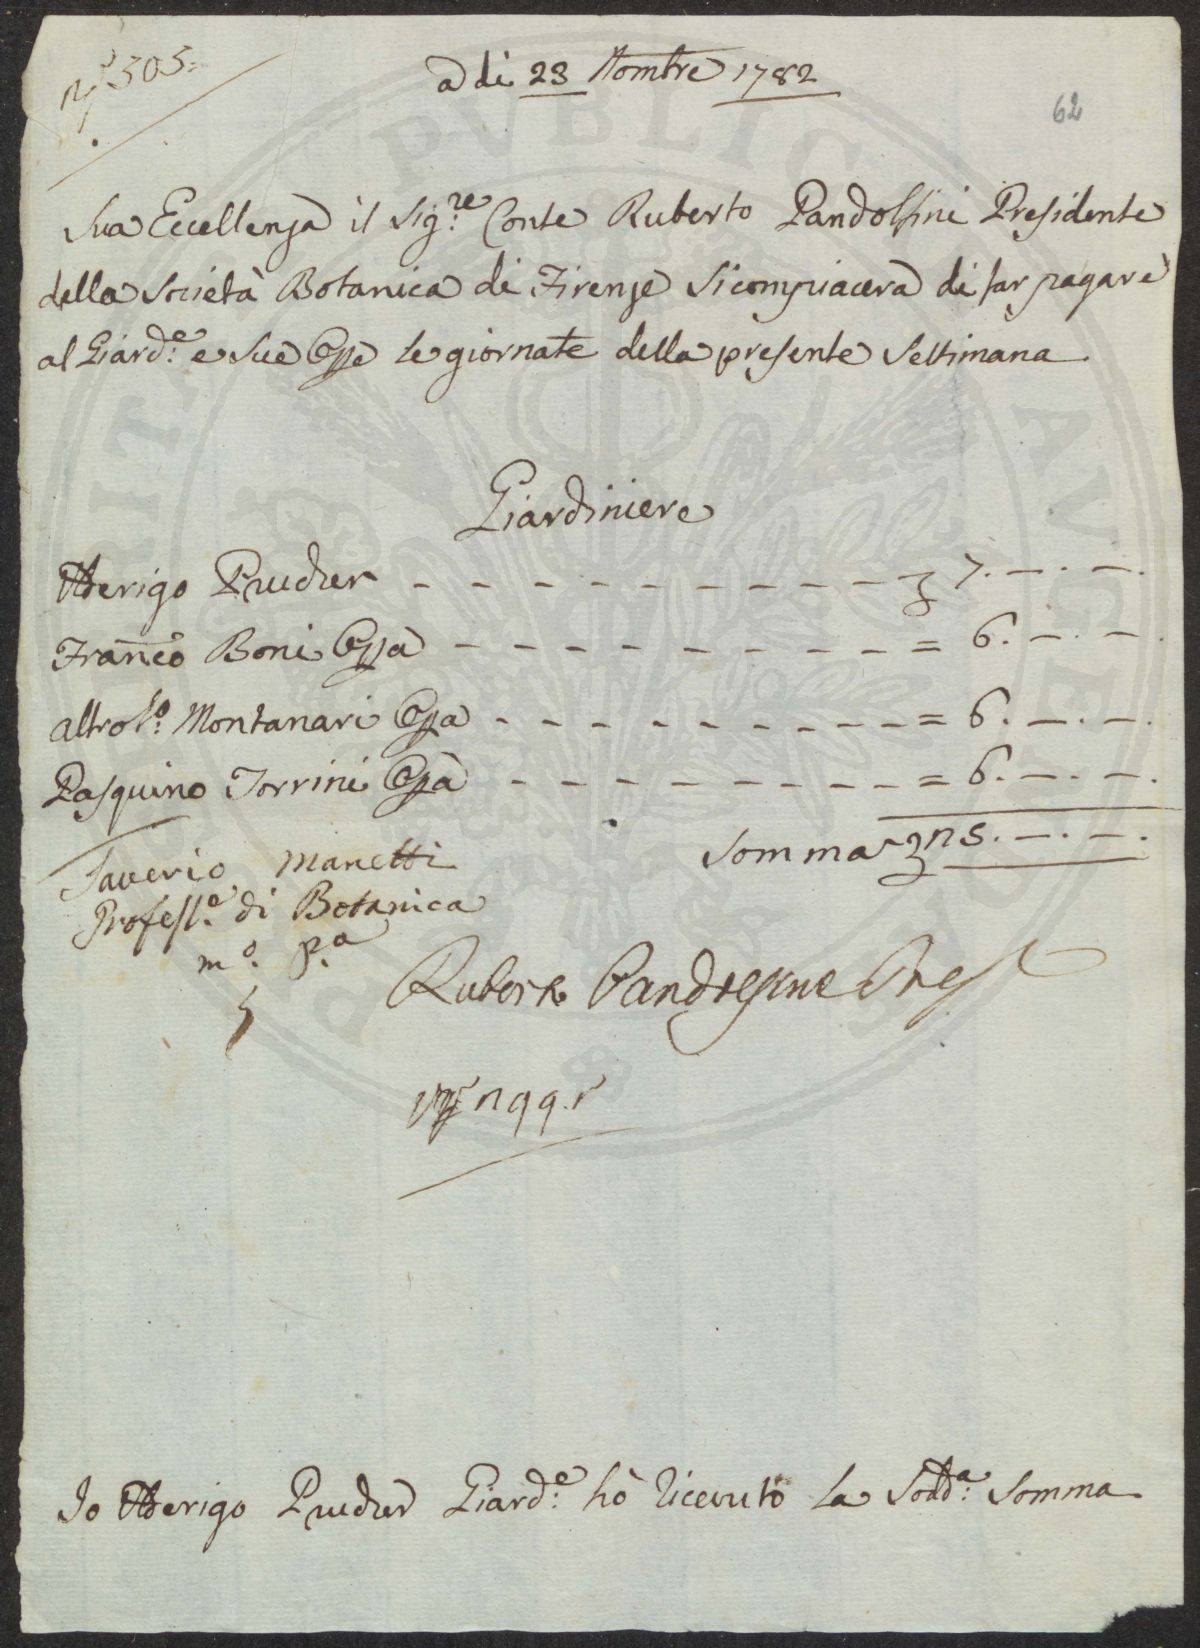 N.° 305.
a di 23 Nombre 1782
62
Sua Eccellenza il Sig.re Conte Ruberto Pandolfini Presidente
della Società Botanica di Firenze si compiacerà di far pagare
al Giard.e e sue Opre le giornate della presente Settimana
Giardiniere
Prucher - - - - - - - - - - - 7. — . — .
Franco Boni Opra - - - - - - - - - = 6. — . — .
altro Montanari Opra - - - - - - - - - = 6. — . — .
Pasquino Torrini Opra - - - - - - - - - = 6. — . — .
Somma 25. — . — .
Saverio Manetti
Profess.e di Botanica
m.o p.a
Ruberto Pandolfini Pres
Io Prucher Giard.e hò ricevuto la Sodd.a Somma